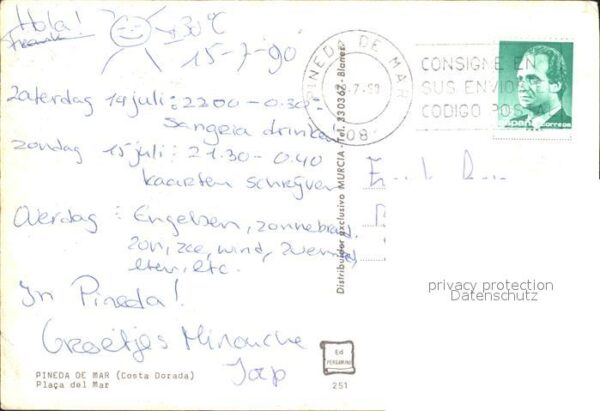 Hola! +30°C
15-7-90
zaterdag 14 juli: 22.00 - 0.30:
Sangria drinken
zondag 15 juli: 21.30 - 0.40
kaarten schrijven
Overdag: Engelsen, zonnebrand,
zon, zee, wind,
eten, etc.
In Pineda!
Groetjes Minouche
Jaap
PINEDA DE MAR
-7-90
08
CONSIGNE EN
SUS ENVIOS EL
CODIGO POSTA
españa correos
Distribuidor exclusivo MURCIA-Tel. 330362-Blanes
privacy protection
Datenschutz
PINEDA DE MAR (Costa Dorada)
Plaça del Mar
Ed
PERGAMINO
251